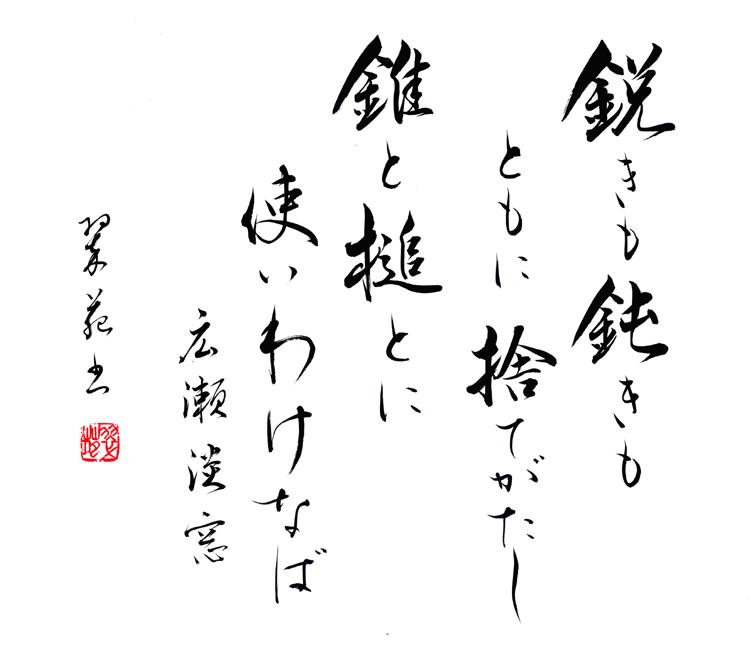 鋭きも鈍きも
ともに捨てがたし
錐と槌とに
使いわけなば
広瀬淡窓
翠苑書